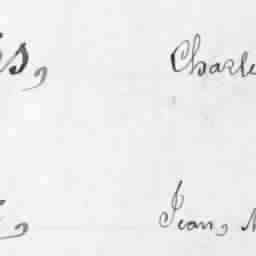 s, Charle
, Jean, M